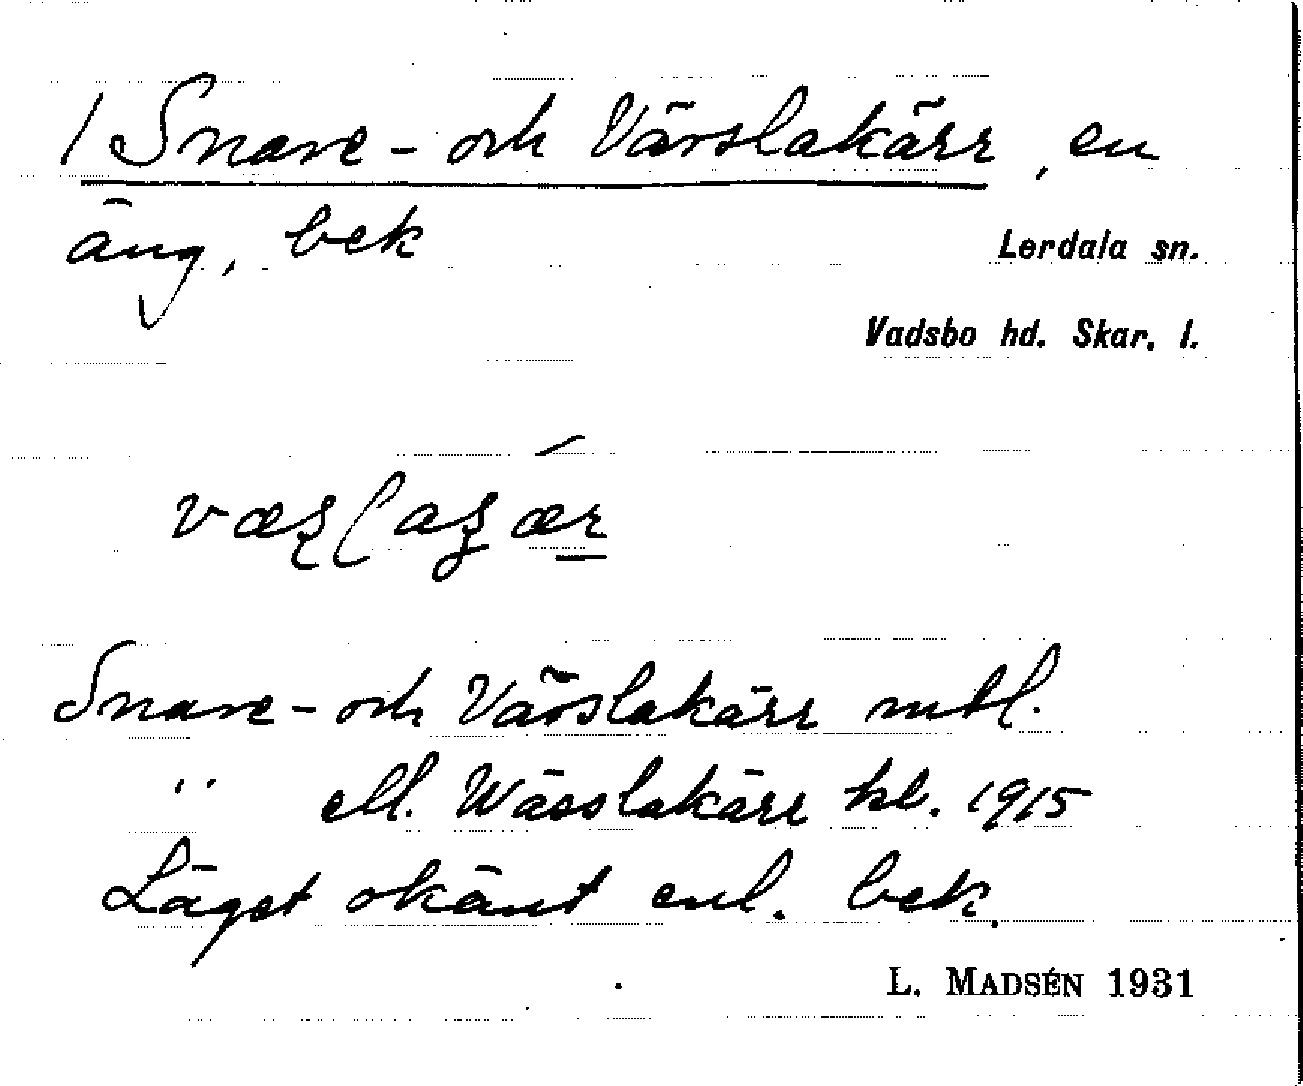 / Snare- och Värslakärr, en
äng, bek
Lerdala sn.
Vadsbo hd. Skar. l.
Snare- och Värslakärr mtl.
" ell. Wässlakärr kl. 1915
Läget okänt enl. bek.
L. MADSÉN 1931